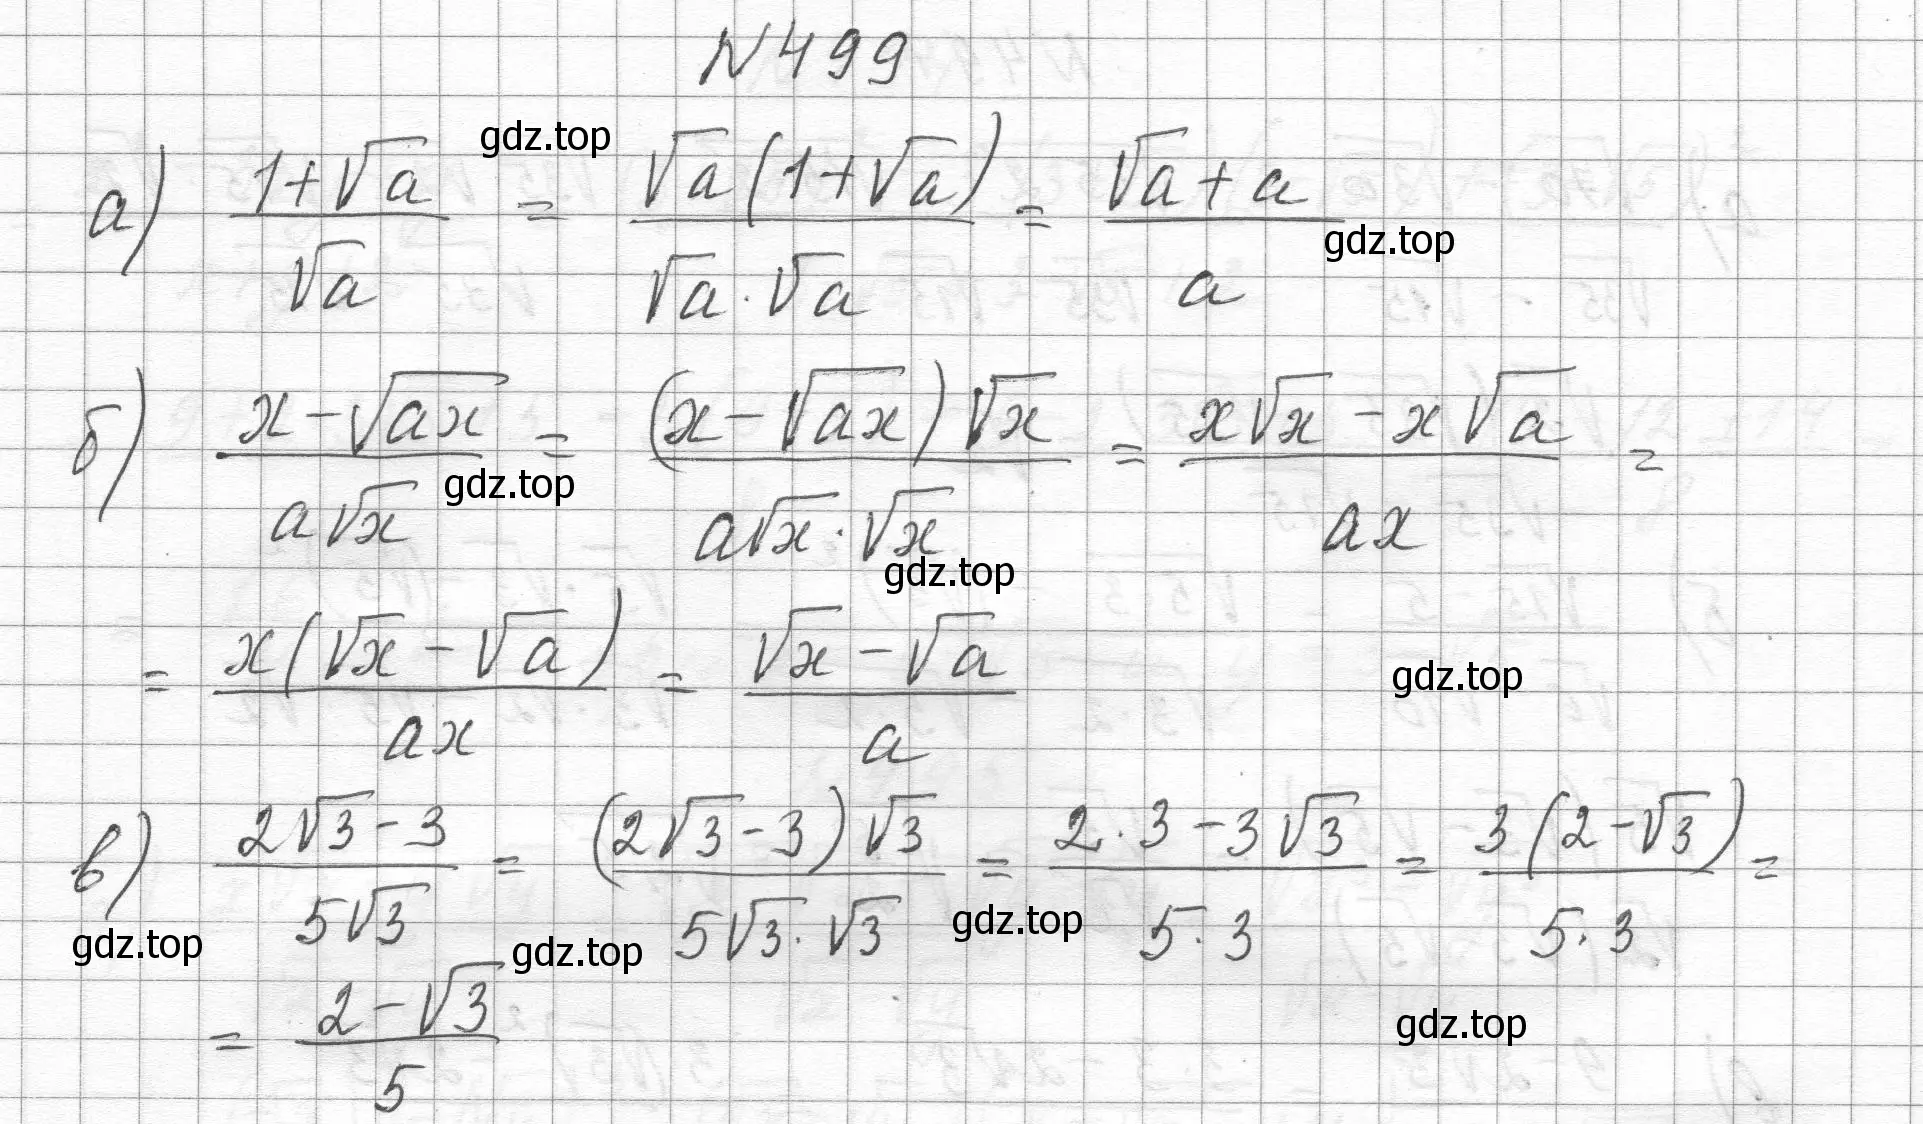 N 499
gdz.top
а) (1+√a)/√a = (√a(1+√a))/(√a·√a) = (√a+a)/a
gdz.top
б) (x-√ax)/(a√x) = ((x-√ax)√x)/(a√x·√x) = (x√x-x√a)/(ax) =
gdz.top
gdz.top
= (x(√x-√a))/(ax) = (√x-√a)/a
gdz.top
в) (2√3-3)/(5√3) = ((2√3-3)√3)/(5√3·√3) = (2·3-3√3)/(5·3) = (3(2-√3))/(5·3) =
gdz.top
gdz.top
gdz.top
= (2-√3)/5
gdz.top